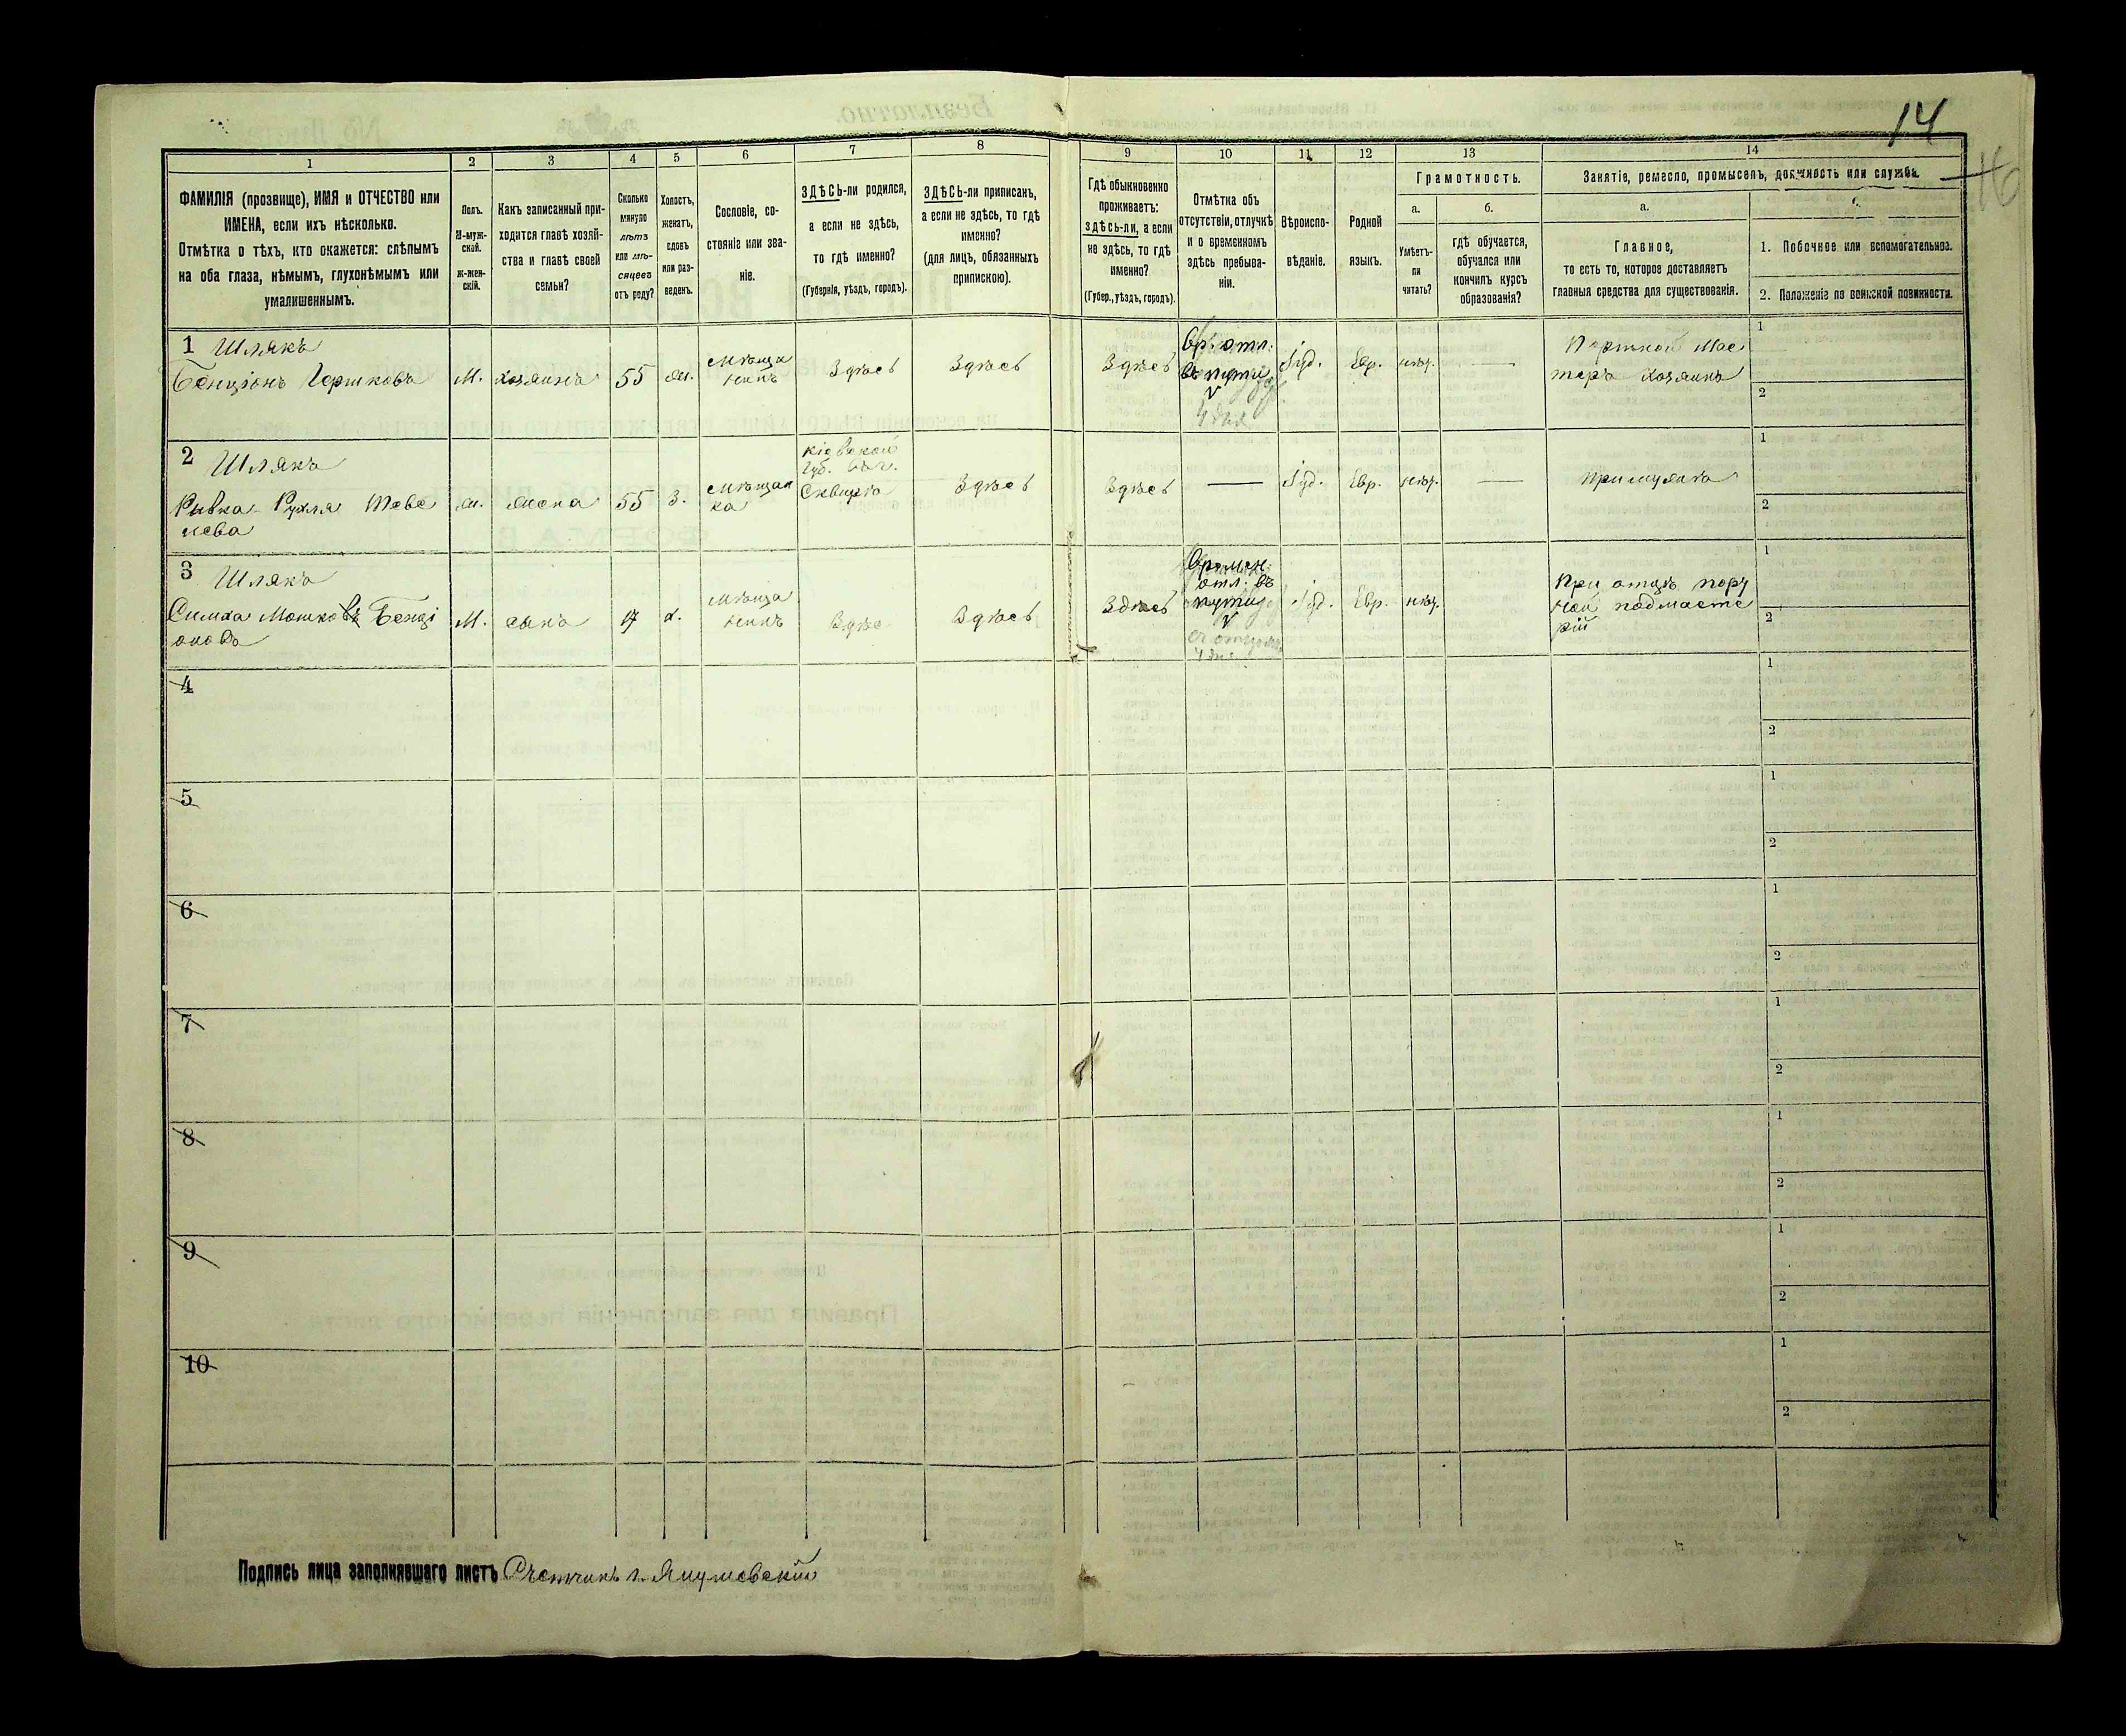 14
16
1 2 3 4 5 6 7 8 9 10 11 12 13 14
ФАМИЛІЯ (прозвище), ИМЯ и ОТЧЕСТВО или
ИМЕНА, если ихъ нѣсколько.
Отмѣтка о тѣхъ, кто окажется: слѣпымъ
на оба глаза, нѣмымъ, глухонѣмымъ или
умалишеннымъ.
Полъ.
М-муж-
ской.
ж-жен-
скій.
Какъ записанный при-
ходится главѣ хозяй-
ства и главѣ своей
семьи?
Сколько
минуло
лѣтъ
или мѣ-
сяцевъ
отъ роду?
Холостъ,
женатъ,
вдовъ
или раз-
веденъ.
Сословіе, со-
стояніе или зва-
ніе.
ЗДѢСЬ-ли родился,
а если не здѣсь,
то гдѣ именно?
(Губернія, уѣздъ, городъ).
ЗДѢСЬ-ли приписанъ,
а если не здѣсь, то гдѣ
именно?
(для лицъ, обязанныхъ
припискою).
Гдѣ обыкновенно
проживаетъ:
здѣсь-ли, а если
не здѣсь, то гдѣ
именно?
(Губер., уѣздъ, городъ).
Отмѣтка объ
отсутствіи, отлучкѣ
и о временномъ
здѣсь пребыва-
ніи.
Вѣроиспо-
вѣданіе.
Родной
языкъ.
Грамотность.
а.
Умѣетъ-
ли
читать?
б.
гдѣ обучается,
обучался или
кончилъ курсъ
образованія?
Занятіе, ремесло, промыселъ, должность или служба.
а.
Главное,
то есть то, которое доставляетъ
главныя средства для существованія.
1. Побочное или вспомогательное.
2. Положеніе по воинской повинности.
1 Шлякъ
Бенціонъ Гершковъ
М.
хозяинъ
55
ж.
Мѣща
нинъ
Здѣсь
Здѣсь
Здѣсь
Вр. отл.
въ пути
4 дня
Іуд.
Евр.
нѣт.
—
Портной Мас
теръ хозяинъ
1
2
2 Шлякъ
Ривка Рухля Теве
лева
ж.
жена
55
З.
Мѣщан
ка
Кіевской
губ.
Сквира
Здѣсь
Здѣсь
—
Іуд.
Евр.
нѣт.
—
При мужѣ
1
2
3 Шлякъ
Симха Мошковъ Бенці
оновъ
М.
сынъ
17
х.
Мѣща
нинъ
Здѣс
Здѣсь
Здѣсь
Времен.
отл. въ
пути
съ отцомъ
4 дня
Іуд.
Евр.
нѣт.
При отцѣ порт
ной подмасте
рій
1
2
4
1
2
5
1
2
6
1
2
7
1
2
8
1
2
9
1
2
10
1
2
Подпись лица заполнявшаго листъ Счетчикъ